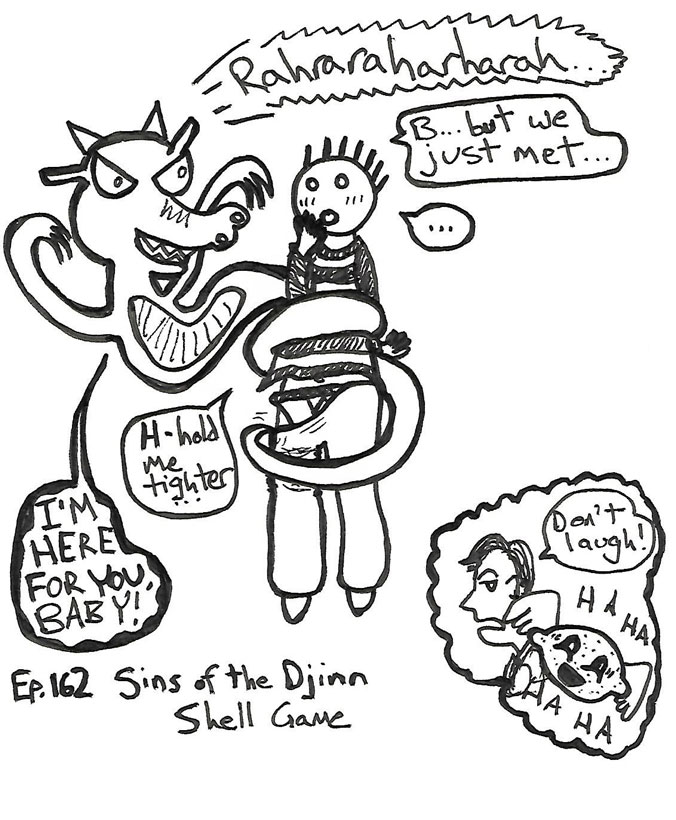 Rahraraharharah...
B... but we
just met...
...
H-hold
me
tighter
...
I'M
HERE
FOR YOU,
BABY!
Don't
laugh!
HA
HA
HA
HA HA
Ep. 162 Sins of the Djinn
Shell Game